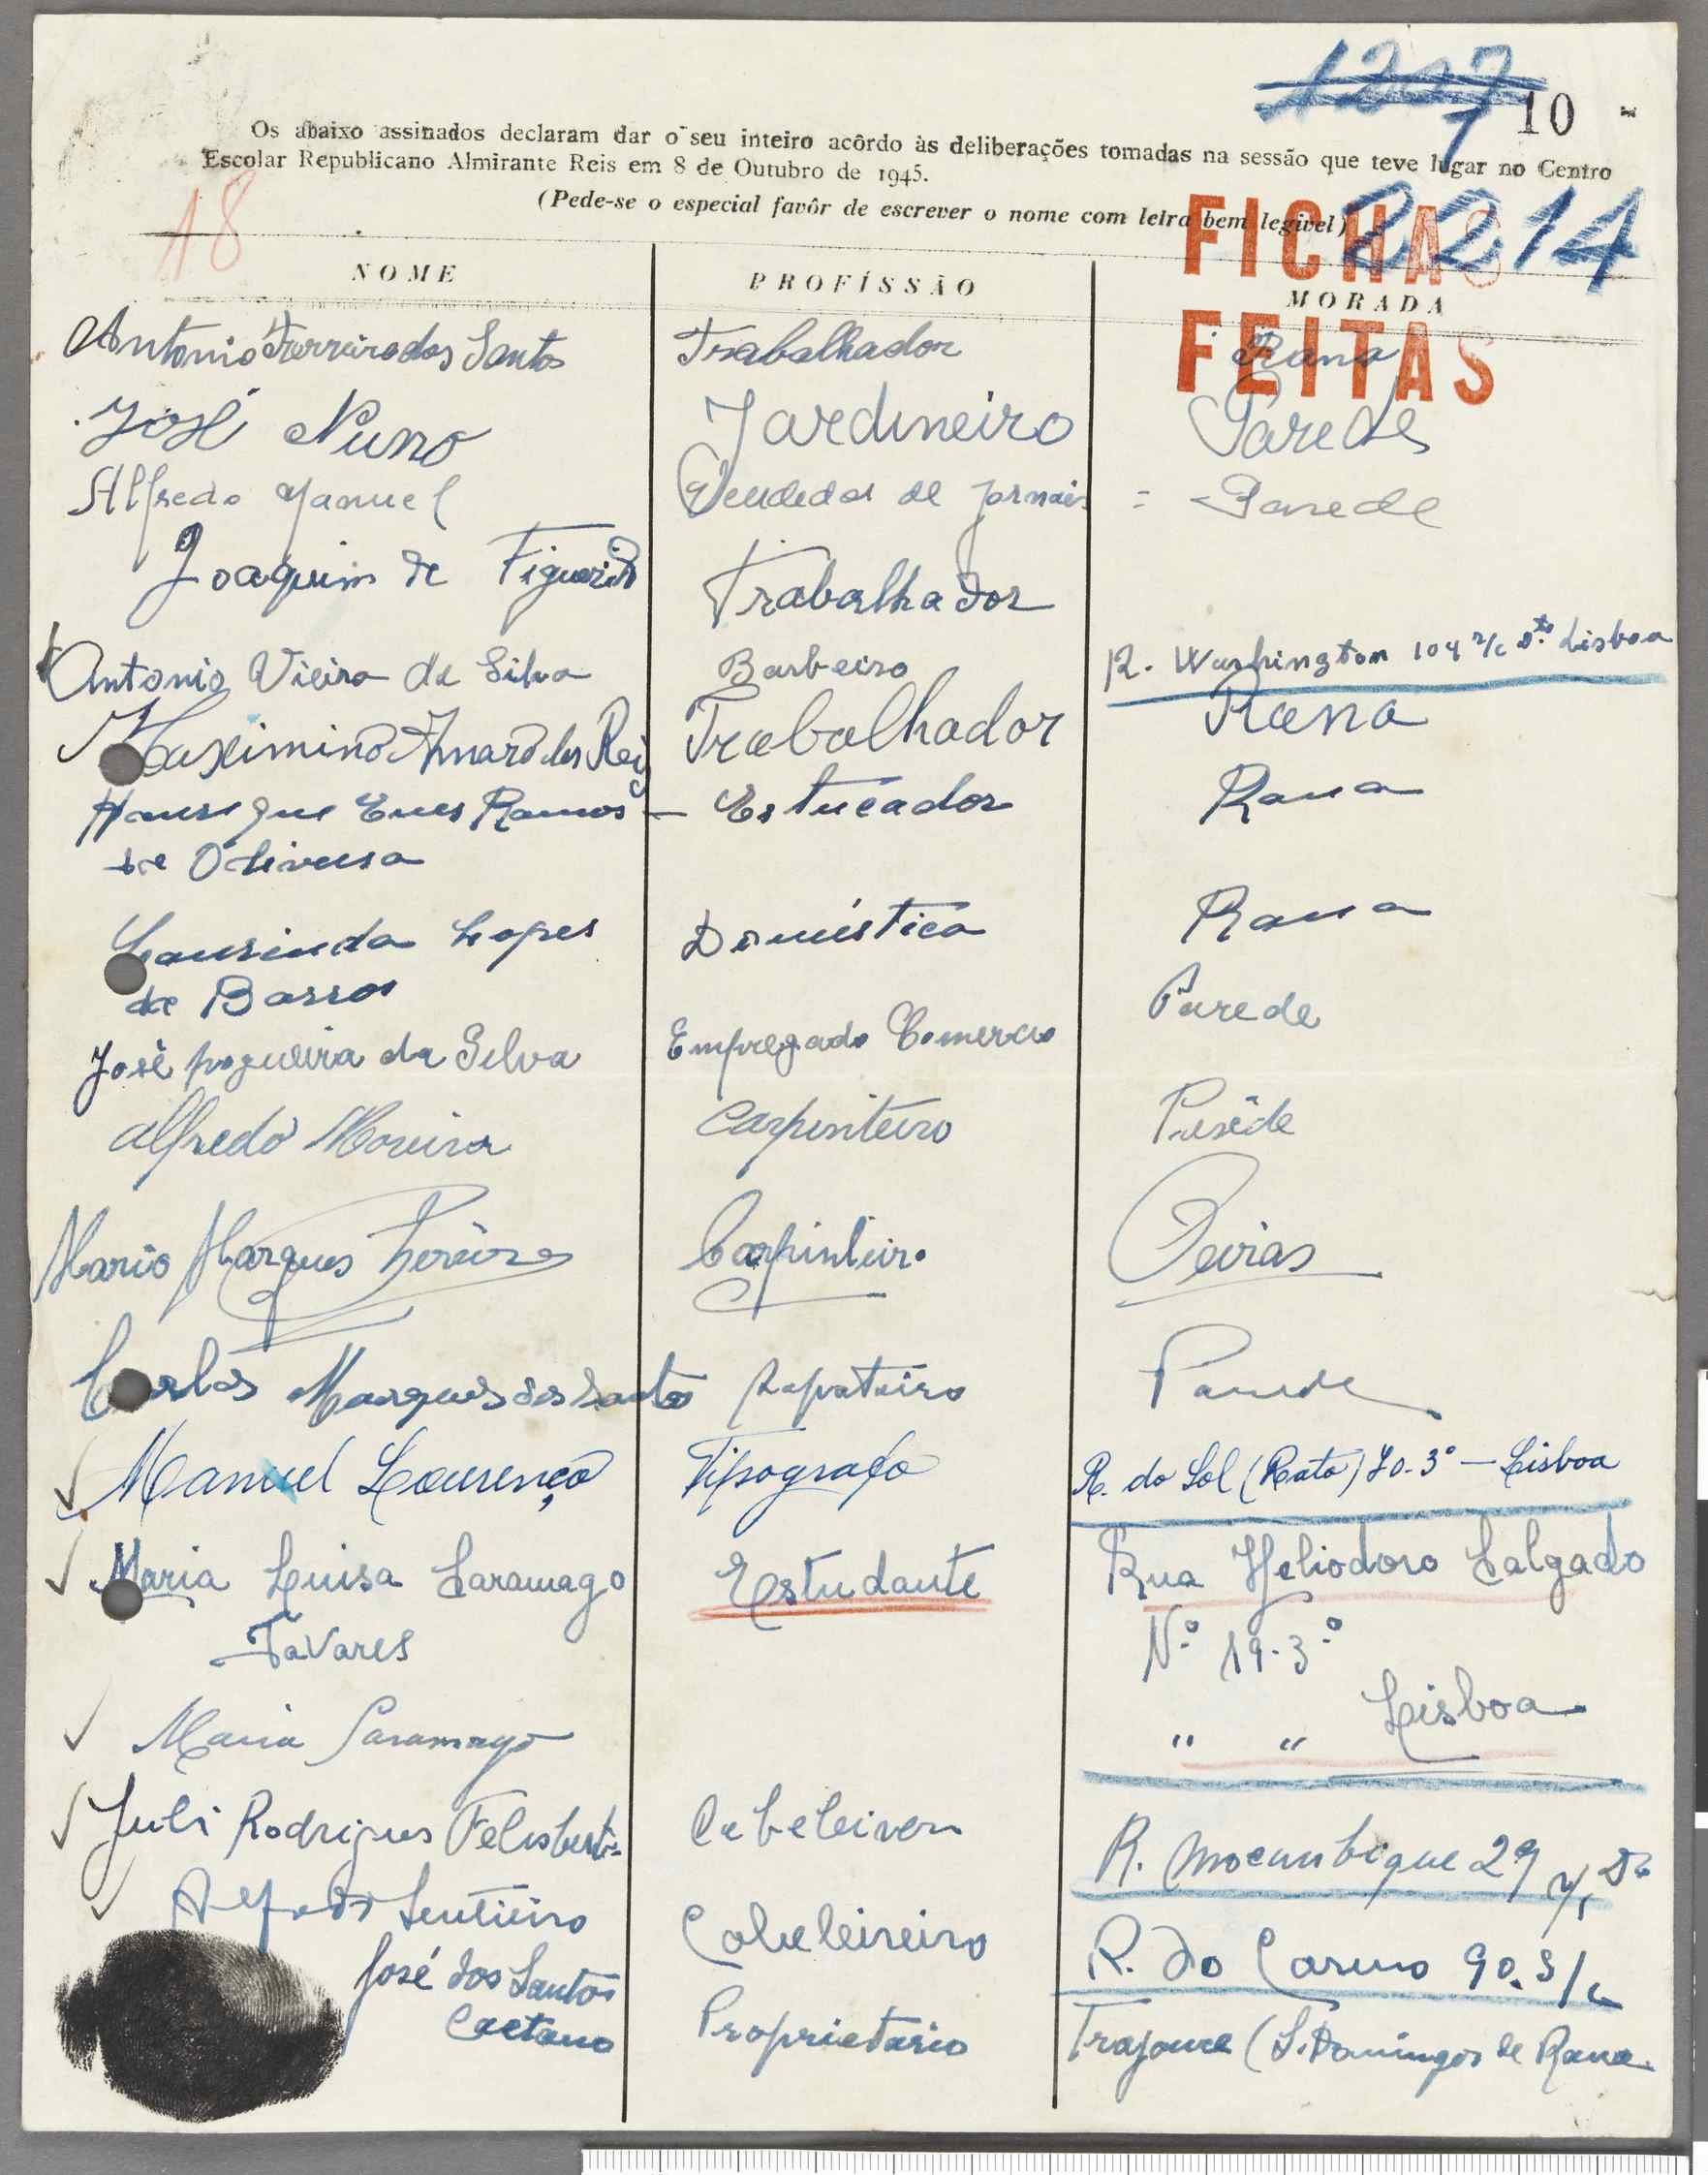 1217
1 10
Os abaixo assinados declaram dar o seu inteiro acôrdo às deliberações tomadas na sessão que teve lugar no Centro
Escolar Republicano Almirante Reis em 8 de Outubro de 1945.
(Pede-se o especial favôr de escrever o nome com letra bem legivel)
18
FICHAS 2214
FEITAS
NOME PROFÍSSÃO MORADA
Antonio Ferreira dos Santos Trabalhador Rana
José Nuno Jardineiro Parede
Alfredo Manuel Vendedor de Jornais = Parede
Joaquim de Figueiredo Trabalhador
Antonio Vieira da Silva Barbeiro R. Washington 104 r/c D.to Lisboa
Maximino Amaro dos Reis Trabalhador Rana
Henrique Enes Ramos — Estucador Rana
de Oliveira
Laurinda Lopes Doméstica Rana
de Barros
José Nogueira da Silva Empregado Comercio Parede
Alfredo Moreira Carpinteiro Parêde
Mario Marques Pereira Carpinteiro Oeiras
Carlos Marques dos Santos Sapateiro Parede
Manuel Lourenço Tipografo R. do Sol (Rato) 70-3º — Lisboa
Maria Luisa Saramago Estudante Rua Heliodoro Salgado
Tavares Nº 19-3º
Maria Saramago " " Lisboa
Juli Rodrigues Felisberto Cabeleirero R. Mocambique 29 r/c Do
Alfredo Cabeleireiro R. do Carmo 90. S/L
José dos Santos
Caetano Proprietario Trajouce (S. Domingos de Rana